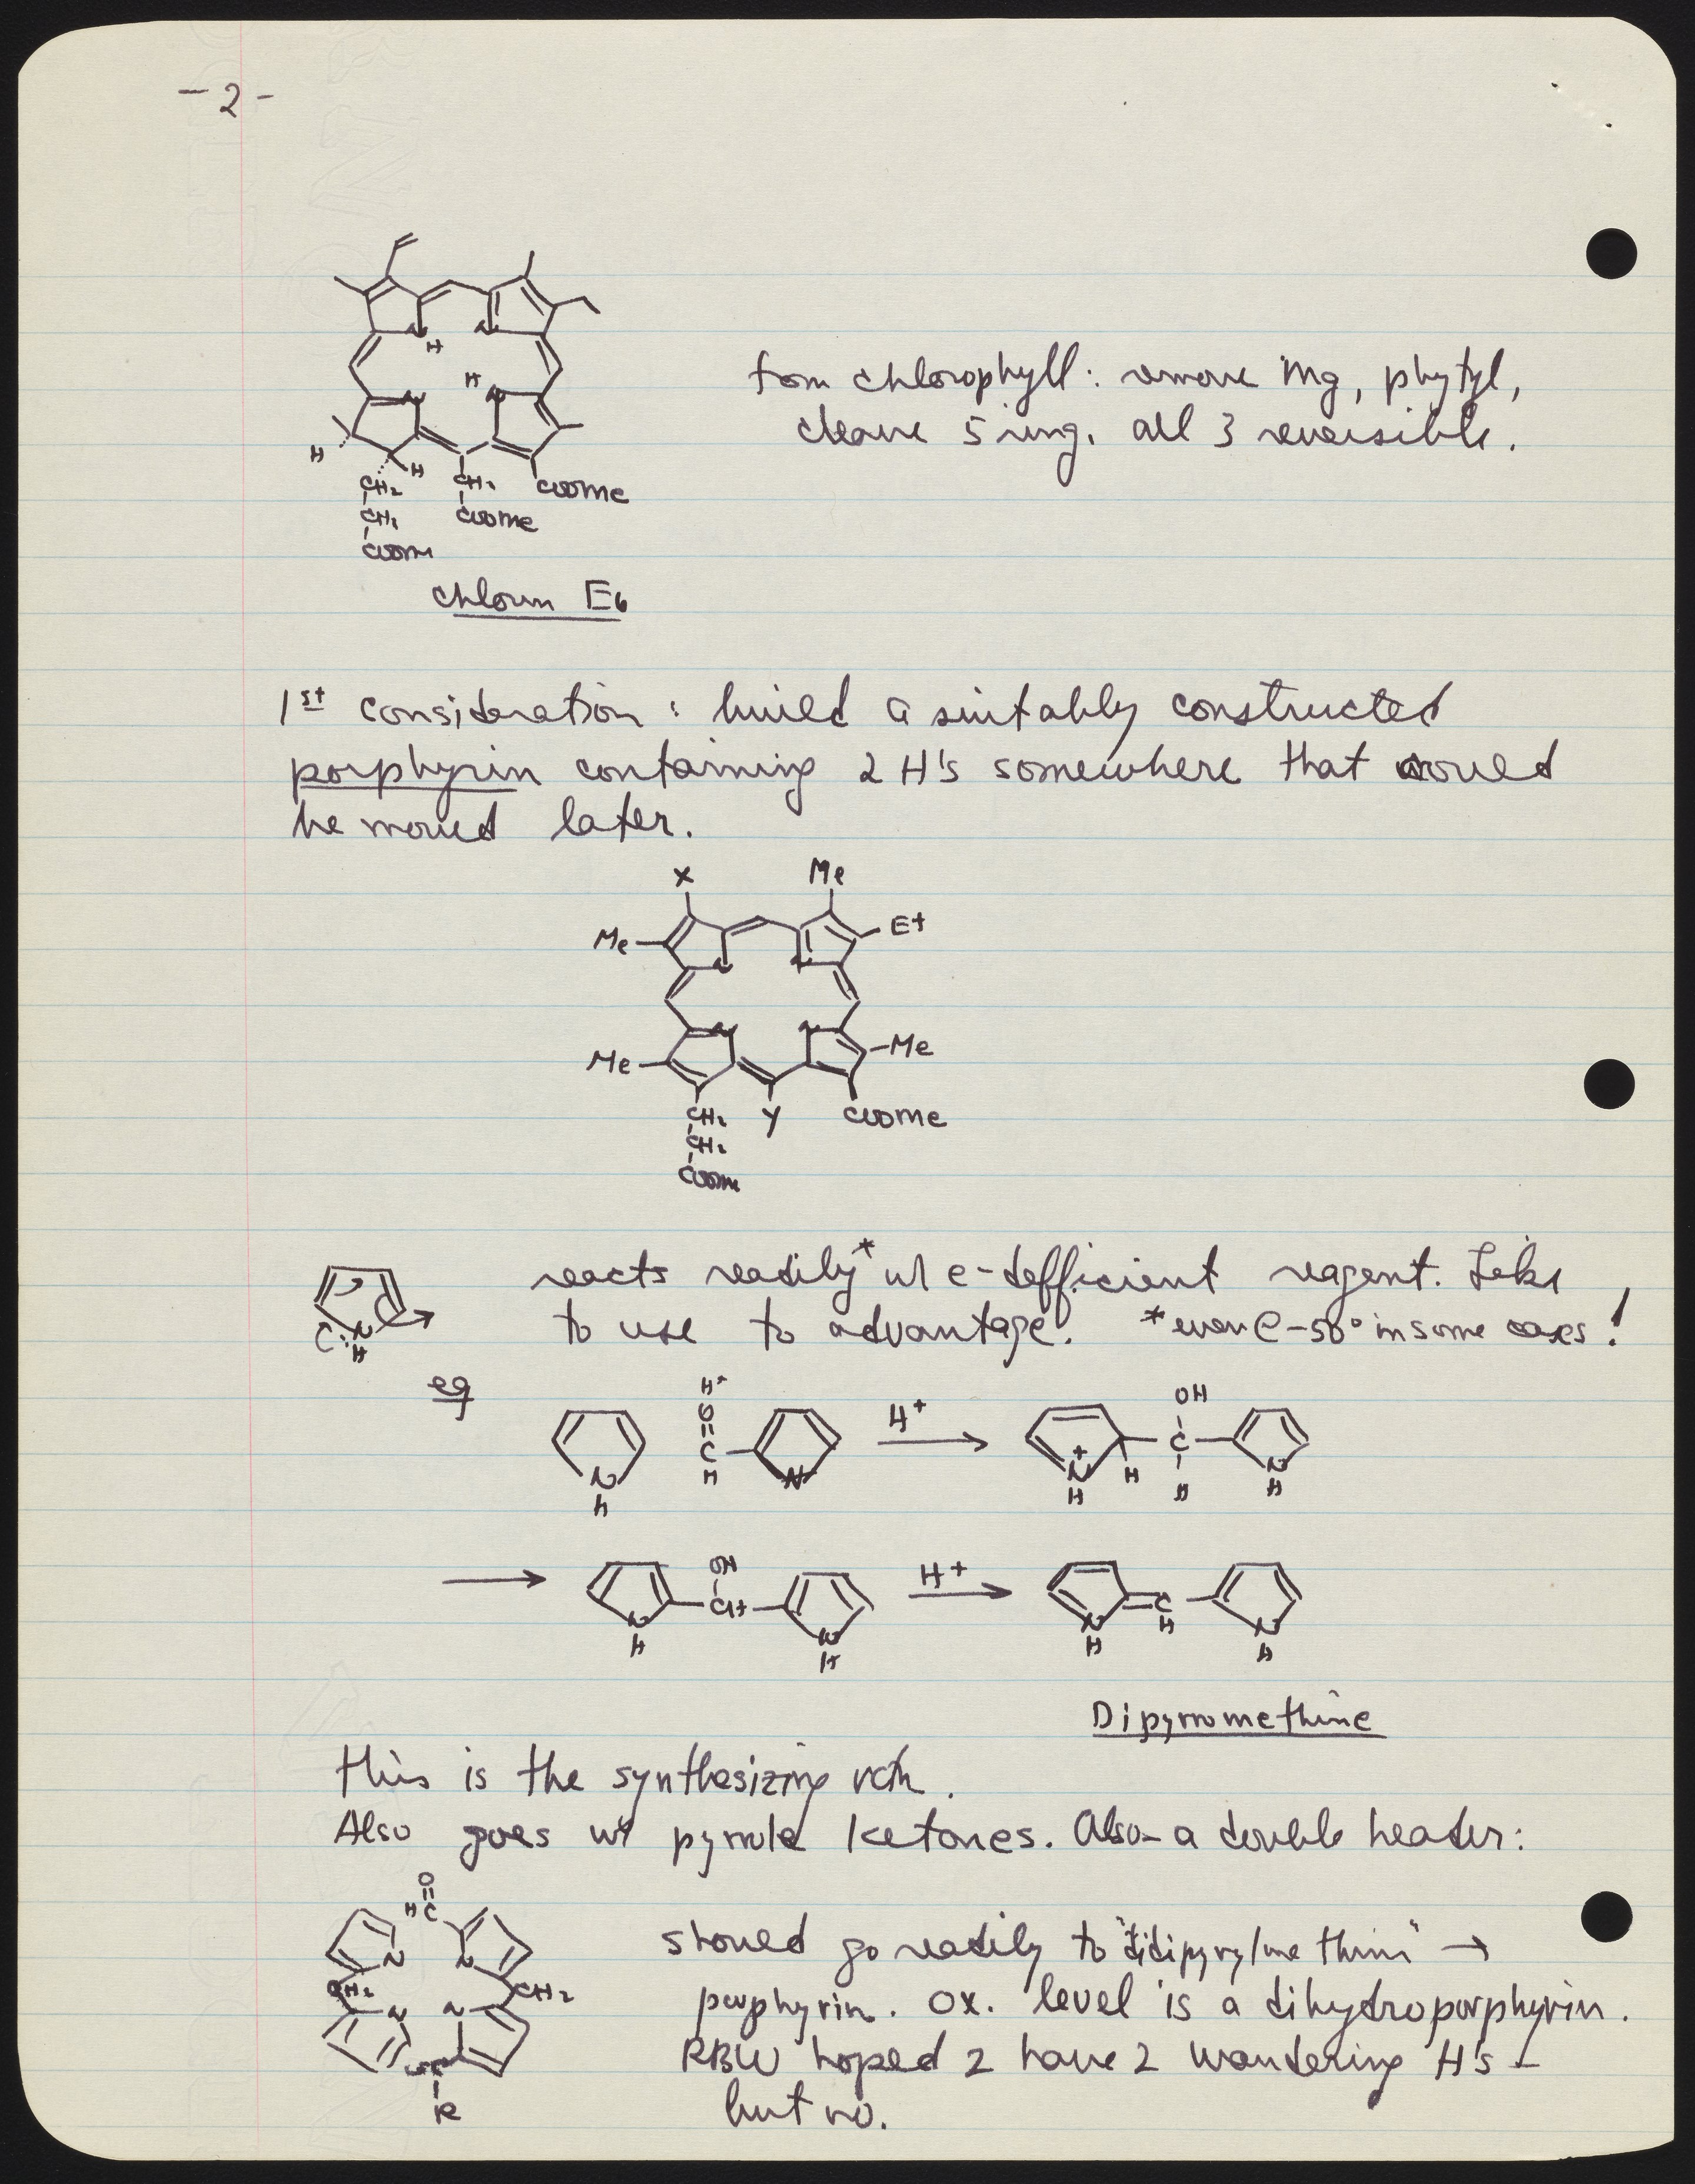 -2-
N
N
H
H
N
N
H
H
CH2
CH2
COOMe
CH2
COOMe
CH2
COOMe
chlorin E6
from chlorophyll: remove Mg, phytyl,
cleave 5 ring. all 3 reversible.
1st consideration: build a suitably constructed
porphyrin containing 2 H's somewhere that could
be moved later.
X
Me
Me
Et
N
N
N
N
Me
Me
CH2
Y
COOMe
CH2
COOMe
reacts readily* w/ e-defficient reagent. Like
to use to advantage. *even @ -50° in some cases!
N
H
eg
H+
O
C
H
N
H
N
H+
OH
C
H
H
N+
H
N
H
OH
CH
N
H
N
H
H+
C
H
N
H
N
H
Dipyrromethine
this is the synthesizing rxn.
Also goes w/ pyrrole ketones. Also - a double header:
O
H C
N
N
CH2
CH2
N
N
R
should go readily to "didipyrylmethine" →
porphyrin. Ox. level is a dihydroporphyrin.
RBW hoped 2 have 2 wandering H's -
but no.